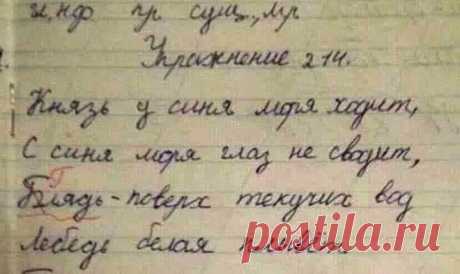 и, нф пр сущ., мр
Упражнение 214.
Князь у синя моря ходит,
С синя моря глаз не сводит,
Г
Блядь - поверх текучих вод
Лебедь белая плывёт.
postila.ru